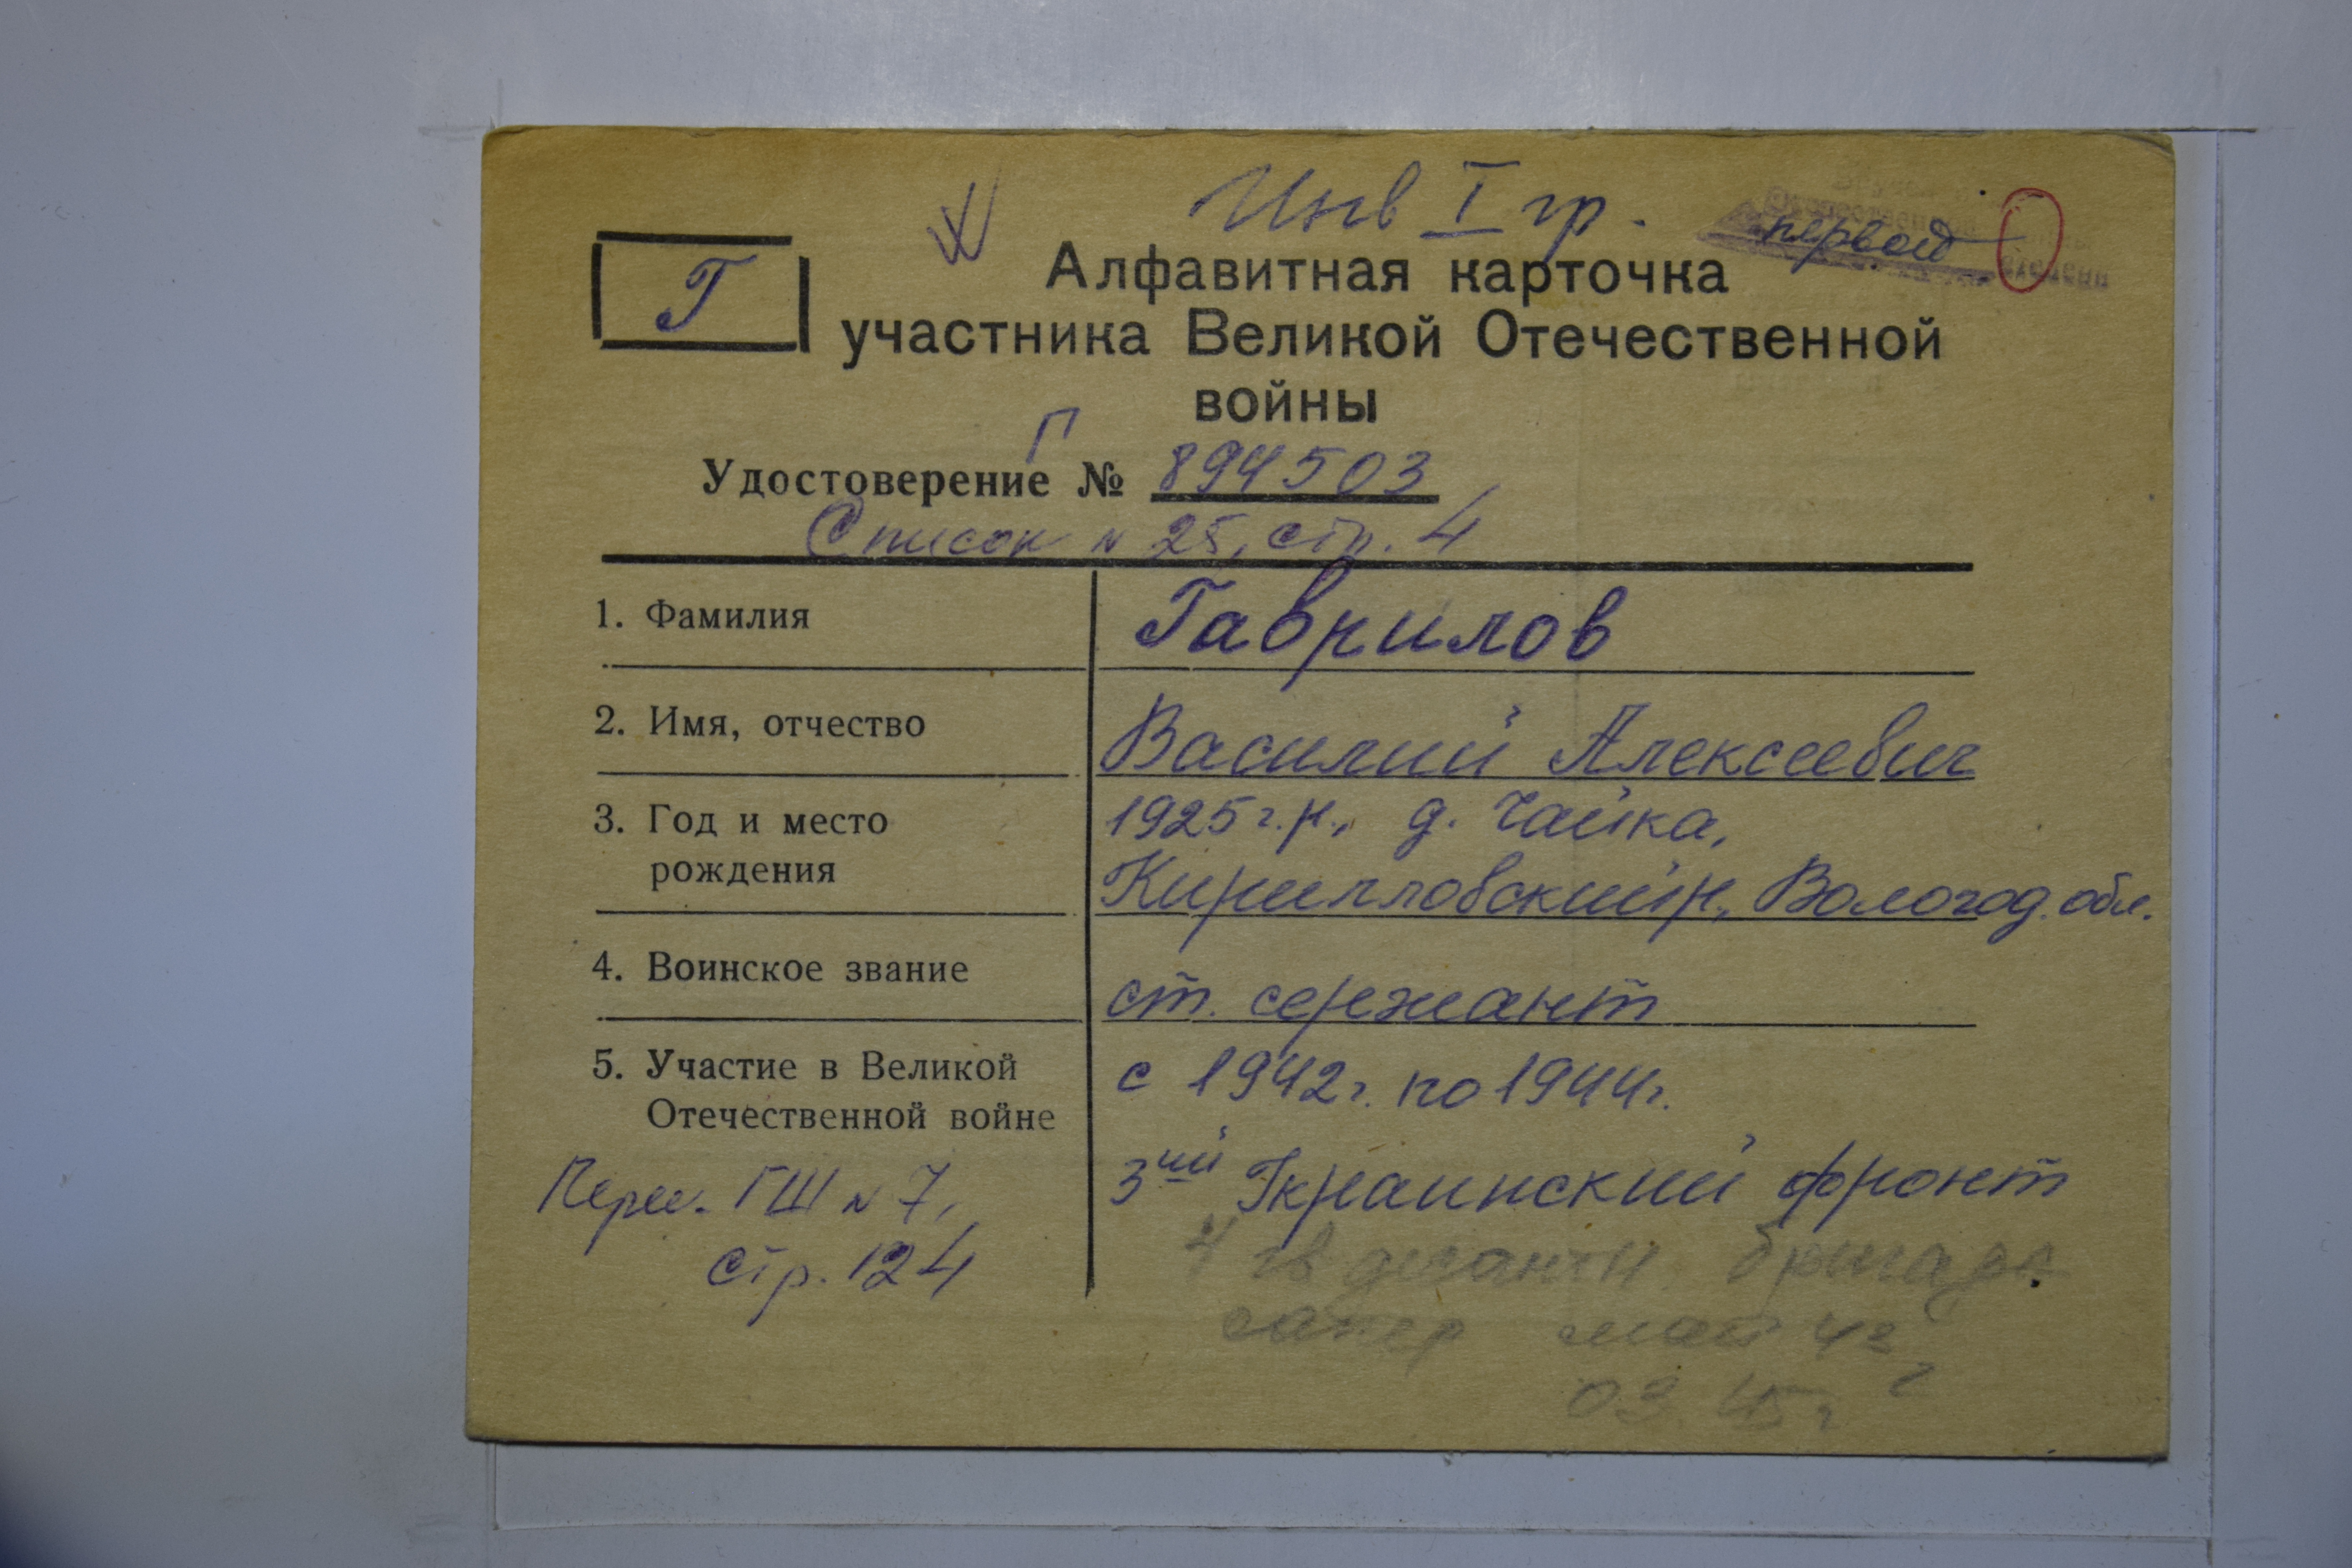 Инв I гр.
первой
Г
Алфавитная карточка
участника Великой Отечественной
войны
Г
Удостоверение № 894503
Список № 25, стр. 4
1. Фамилия Гаврилов
2. Имя, отчество Василий Алексеевич
3. Год и место рождения 1925 г.р., д. Чайка,
Кирилловский р., Вологод. обл.
4. Воинское звание ст. сержант
5. Участие в Великой Отечественной войне с 1942 г. по 1944 г.
3ий Украинский фронт
Перем. ГШ № 7,
стр. 124
4 гв десантн бригада
сапер май 42
03.45 г